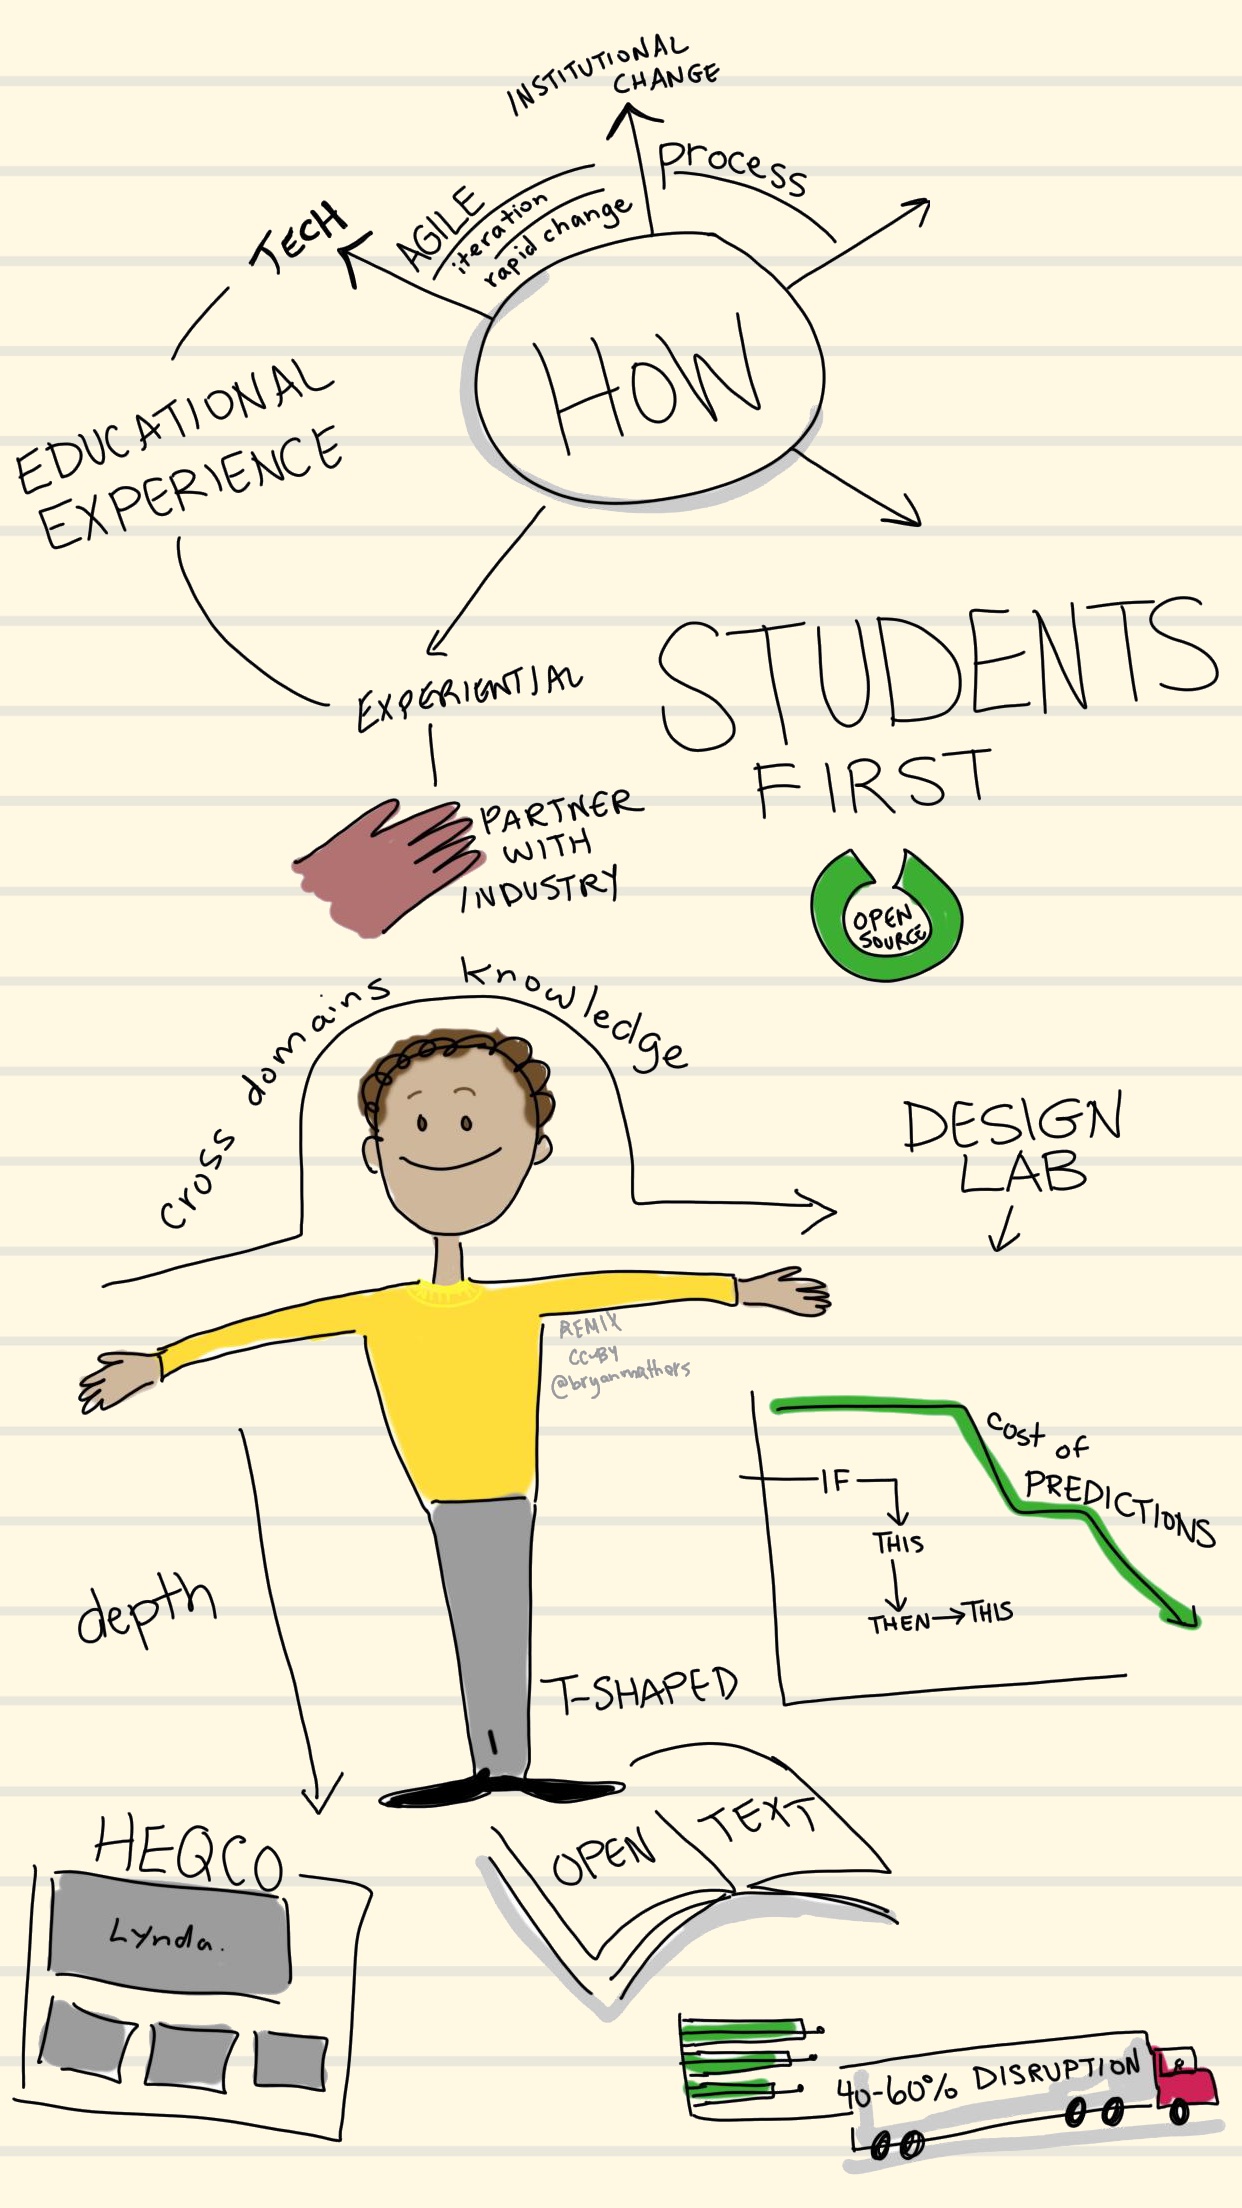 INSTITUTIONAL
CHANGE
Process
AGILE
iteration
rapid change
TECH
HOW
EDUCATIONAL
EXPERIENCE
EXPERIENTIAL
STUDENTS
FIRST
PARTNER
WITH
INDUSTRY
OPEN
SOURCE
cross domains knowledge
DESIGN
LAB
REMIX
CC-BY
@bryanmathers
cost of
PREDICTIONS
IF
THIS
THEN → THIS
depth
T-SHAPED
HEQCO
Lynda.
OPEN TEXT
40-60% DISRUPTION